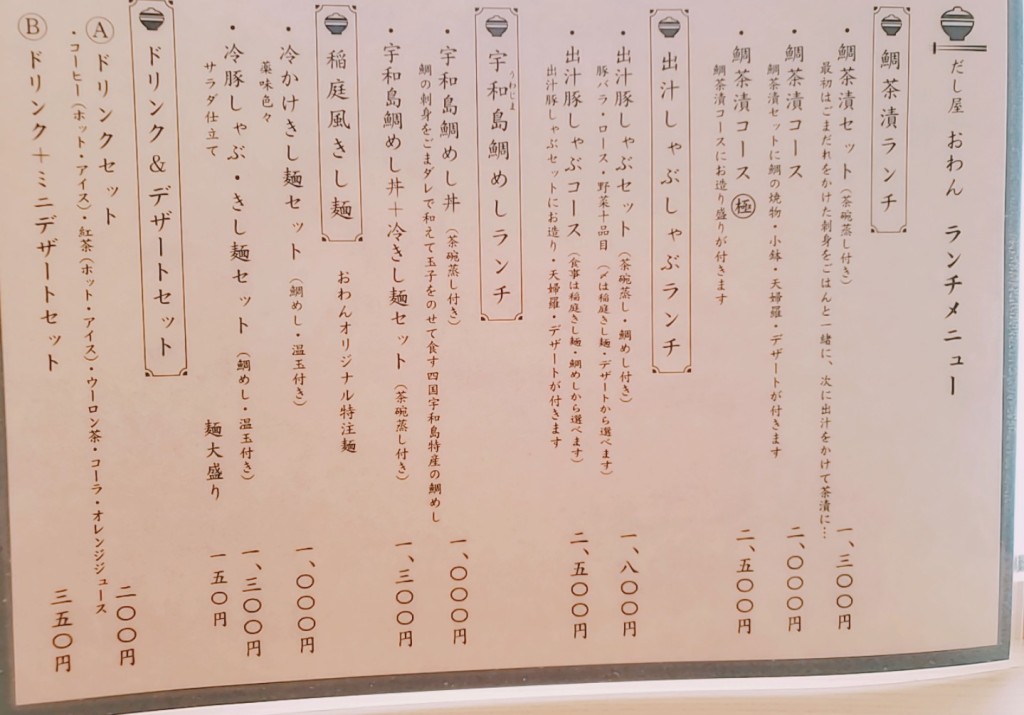 だし屋 おわん ランチメニュー
鯛茶漬ランチ
・鯛茶漬セット(茶碗蒸し付き) 一、三〇〇円
最初はごまだれをかけた刺身をごはんと一緒に、次に出汁をかけて茶漬に…
・鯛茶漬コース 二、〇〇〇円
鯛茶漬セットに鯛の焼物・小鉢・天婦羅・デザートが付きます
・鯛茶漬コース㊗極 二、五〇〇円
鯛茶漬コースにお造り盛りが付きます
出汁しゃぶしゃぶランチ
・出汁豚しゃぶセット(茶碗蒸し・鯛めし付き) 一、八〇〇円
豚バラ・ロース・野菜十品目(〆は稲庭きし麺・デザートから選べます)
・出汁豚しゃぶコース(食事は稲庭きし麺・鯛めしから選べます) 二、五〇〇円
出汁豚しゃぶセットにお造り・天婦羅・デザートが付きます
宇和島鯛めしランチ
うわじま
・宇和島鯛めし丼(茶碗蒸し付き) 一、〇〇〇円
鯛の刺身をごまダレで和えて玉子をのせて食す四国宇和島特産の鯛めし
・宇和島鯛めし丼+冷きし麺セット(茶碗蒸し付き) 一、三〇〇円
稲庭風きし麺 おわんオリジナル特注麺
・冷かけきし麺セット(鯛めし・温玉付き) 一、〇〇〇円
薬味色々
・冷豚しゃぶ・きし麺セット(鯛めし・温玉付き) 一、三〇〇円
サラダ仕立て
麺大盛り 一五〇円
ドリンク&デザートセット
Ⓐドリンクセット 二〇〇円
・コーヒー(ホット・アイス)・紅茶(ホット・アイス)・ウーロン茶・コーラ・オレンジジュース
Ⓑドリンク+ミニデザートセット 三五〇円